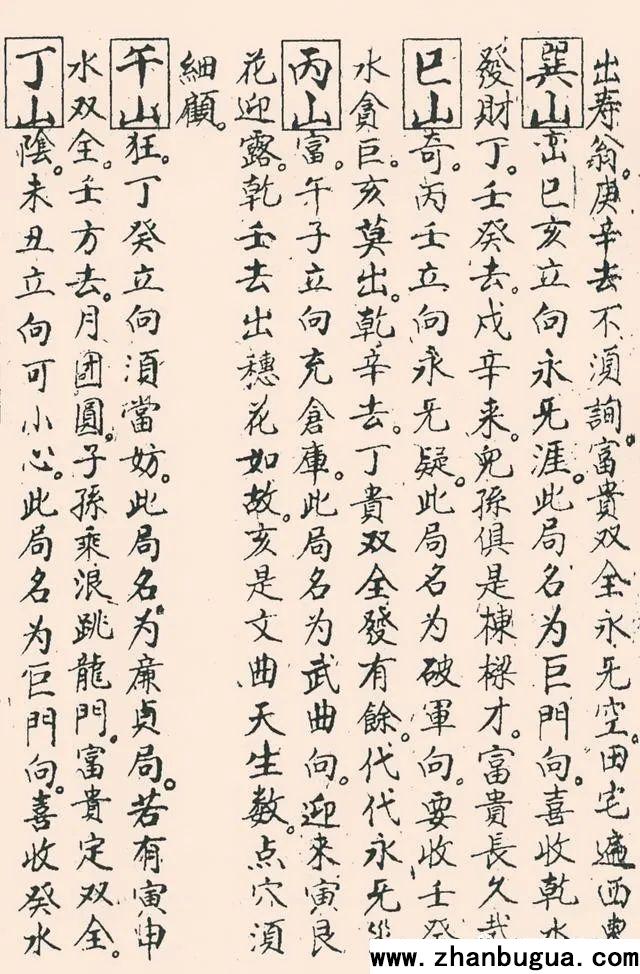 出寿翁。庚辛去不須詢。富貴双全永旡空。田宅遍西東
巽山峦巳亥立向永旡涯。此局名为巨門向。喜收乾水
發財丁。壬癸去。戍辛来。兒孫俱是棟樑才。富貴長久哉
巳山奇。丙壬立向永旡疑。此局名为破軍向。要收壬癸
水貪巨。亥莫出。乾辛去。丁貴双全發有餘。代代永旡
丙山富。午子立向充倉庫。此局名为武曲向。迎来寅艮
花迎露。乾壬去出穗花如故。亥是文曲天生数。点穴須
細顧。
午山狂。丁癸立向須當妨。此局名为廉貞局。若有寅申
水双全。壬方去。月团圓。子孫乘浪跳龍門。富貴定双全。
丁山陰。未丑立向可小心。此局名为巨門向。喜收癸水
www.zhanbugua.com